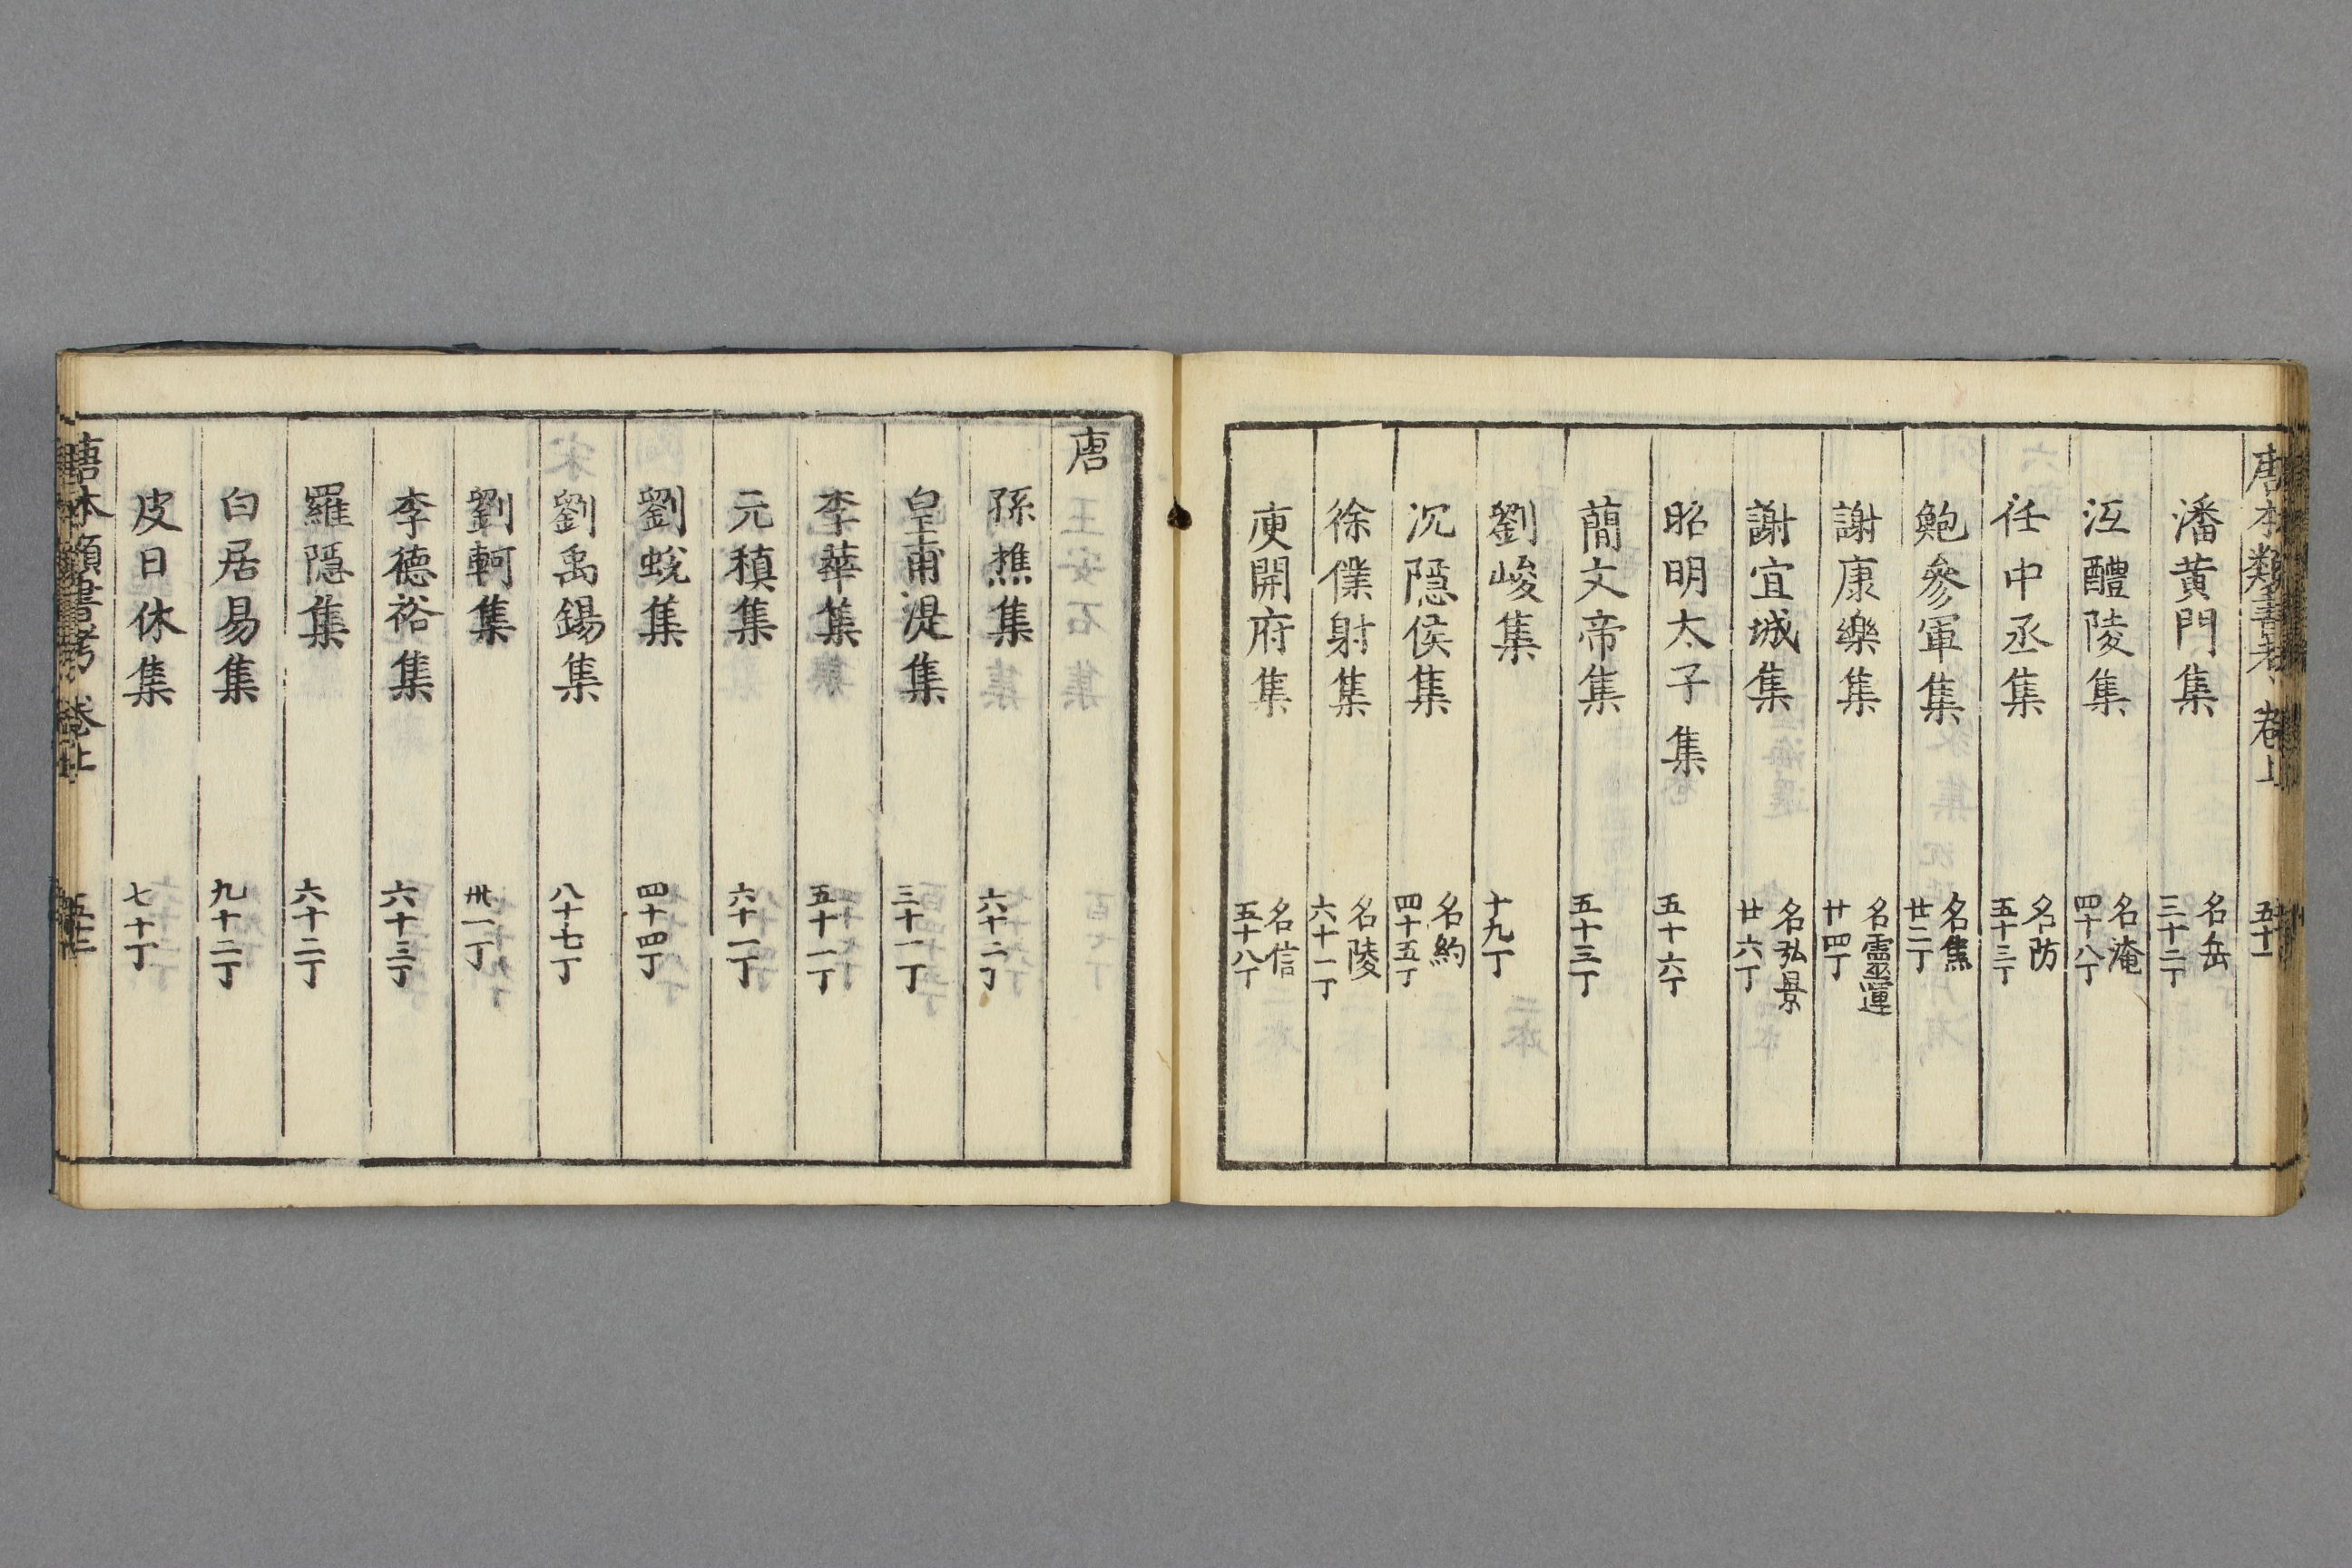 唐本類書考 卷上 五十一
潘黄門集 名岳 三十二丁
江醴陵集 名淹 四十八丁
任中丞集 名昉 五十三丁
鮑參軍集 名焦 廿二丁
謝康樂集 名靈運 廿四丁
謝宜城集 名弘景 廿六丁
昭明太子集 五十六丁
蕳文帝集 五十三丁
劉峻集 十九丁
沉隱侯集 名約 四十五丁
徐僕射集 名陵 六十一丁
庾開府集 名信 五十八丁
唐
孫樵集 六十二丁
皇甫湜集 三十一丁
李華集 五十一丁
元稹集 六十一丁
劉蛻集 四十四丁
劉禹錫集 八十七丁
劉軻集 卅一丁
李德裕集 六十三丁
羅隱集 六十二丁
白居易集 九十二丁
皮日休集 七十丁
唐本類書考 卷上